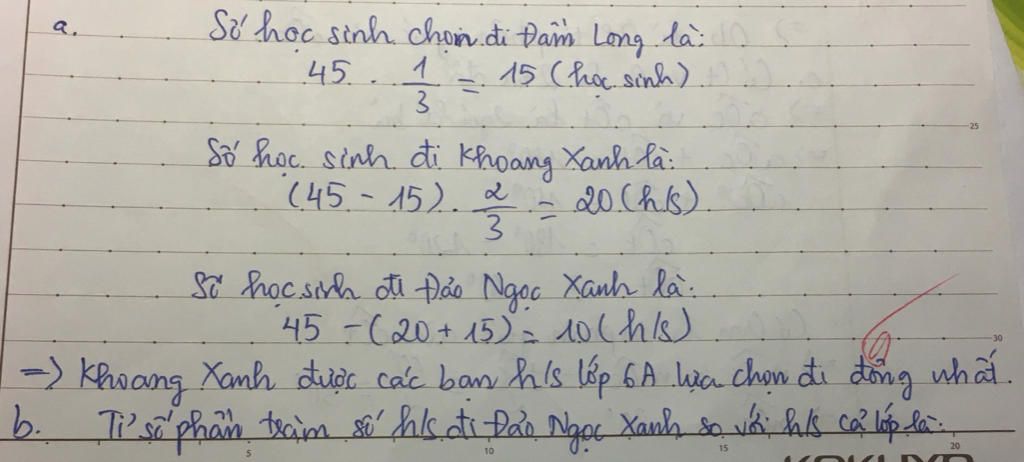 a. Số học sinh chọn đi Đầm Long là:
45 . 1/3 = 15 (học sinh)
25
Số học sinh đi Khoang Xanh là:
(45 - 15) . 2/3 = 20 (h/s)
Số học sinh đi Đảo Ngọc Xanh là:
45 - (20 + 15) = 10 (h/s)
30
=> Khoang Xanh được các bạn h/s lớp 6A lựa chọn đi đông nhất.
b. Tỉ số phần trăm số h/s đi Đảo Ngọc Xanh so với h/s cả lớp là:
5 10 15 20
KOKUYO